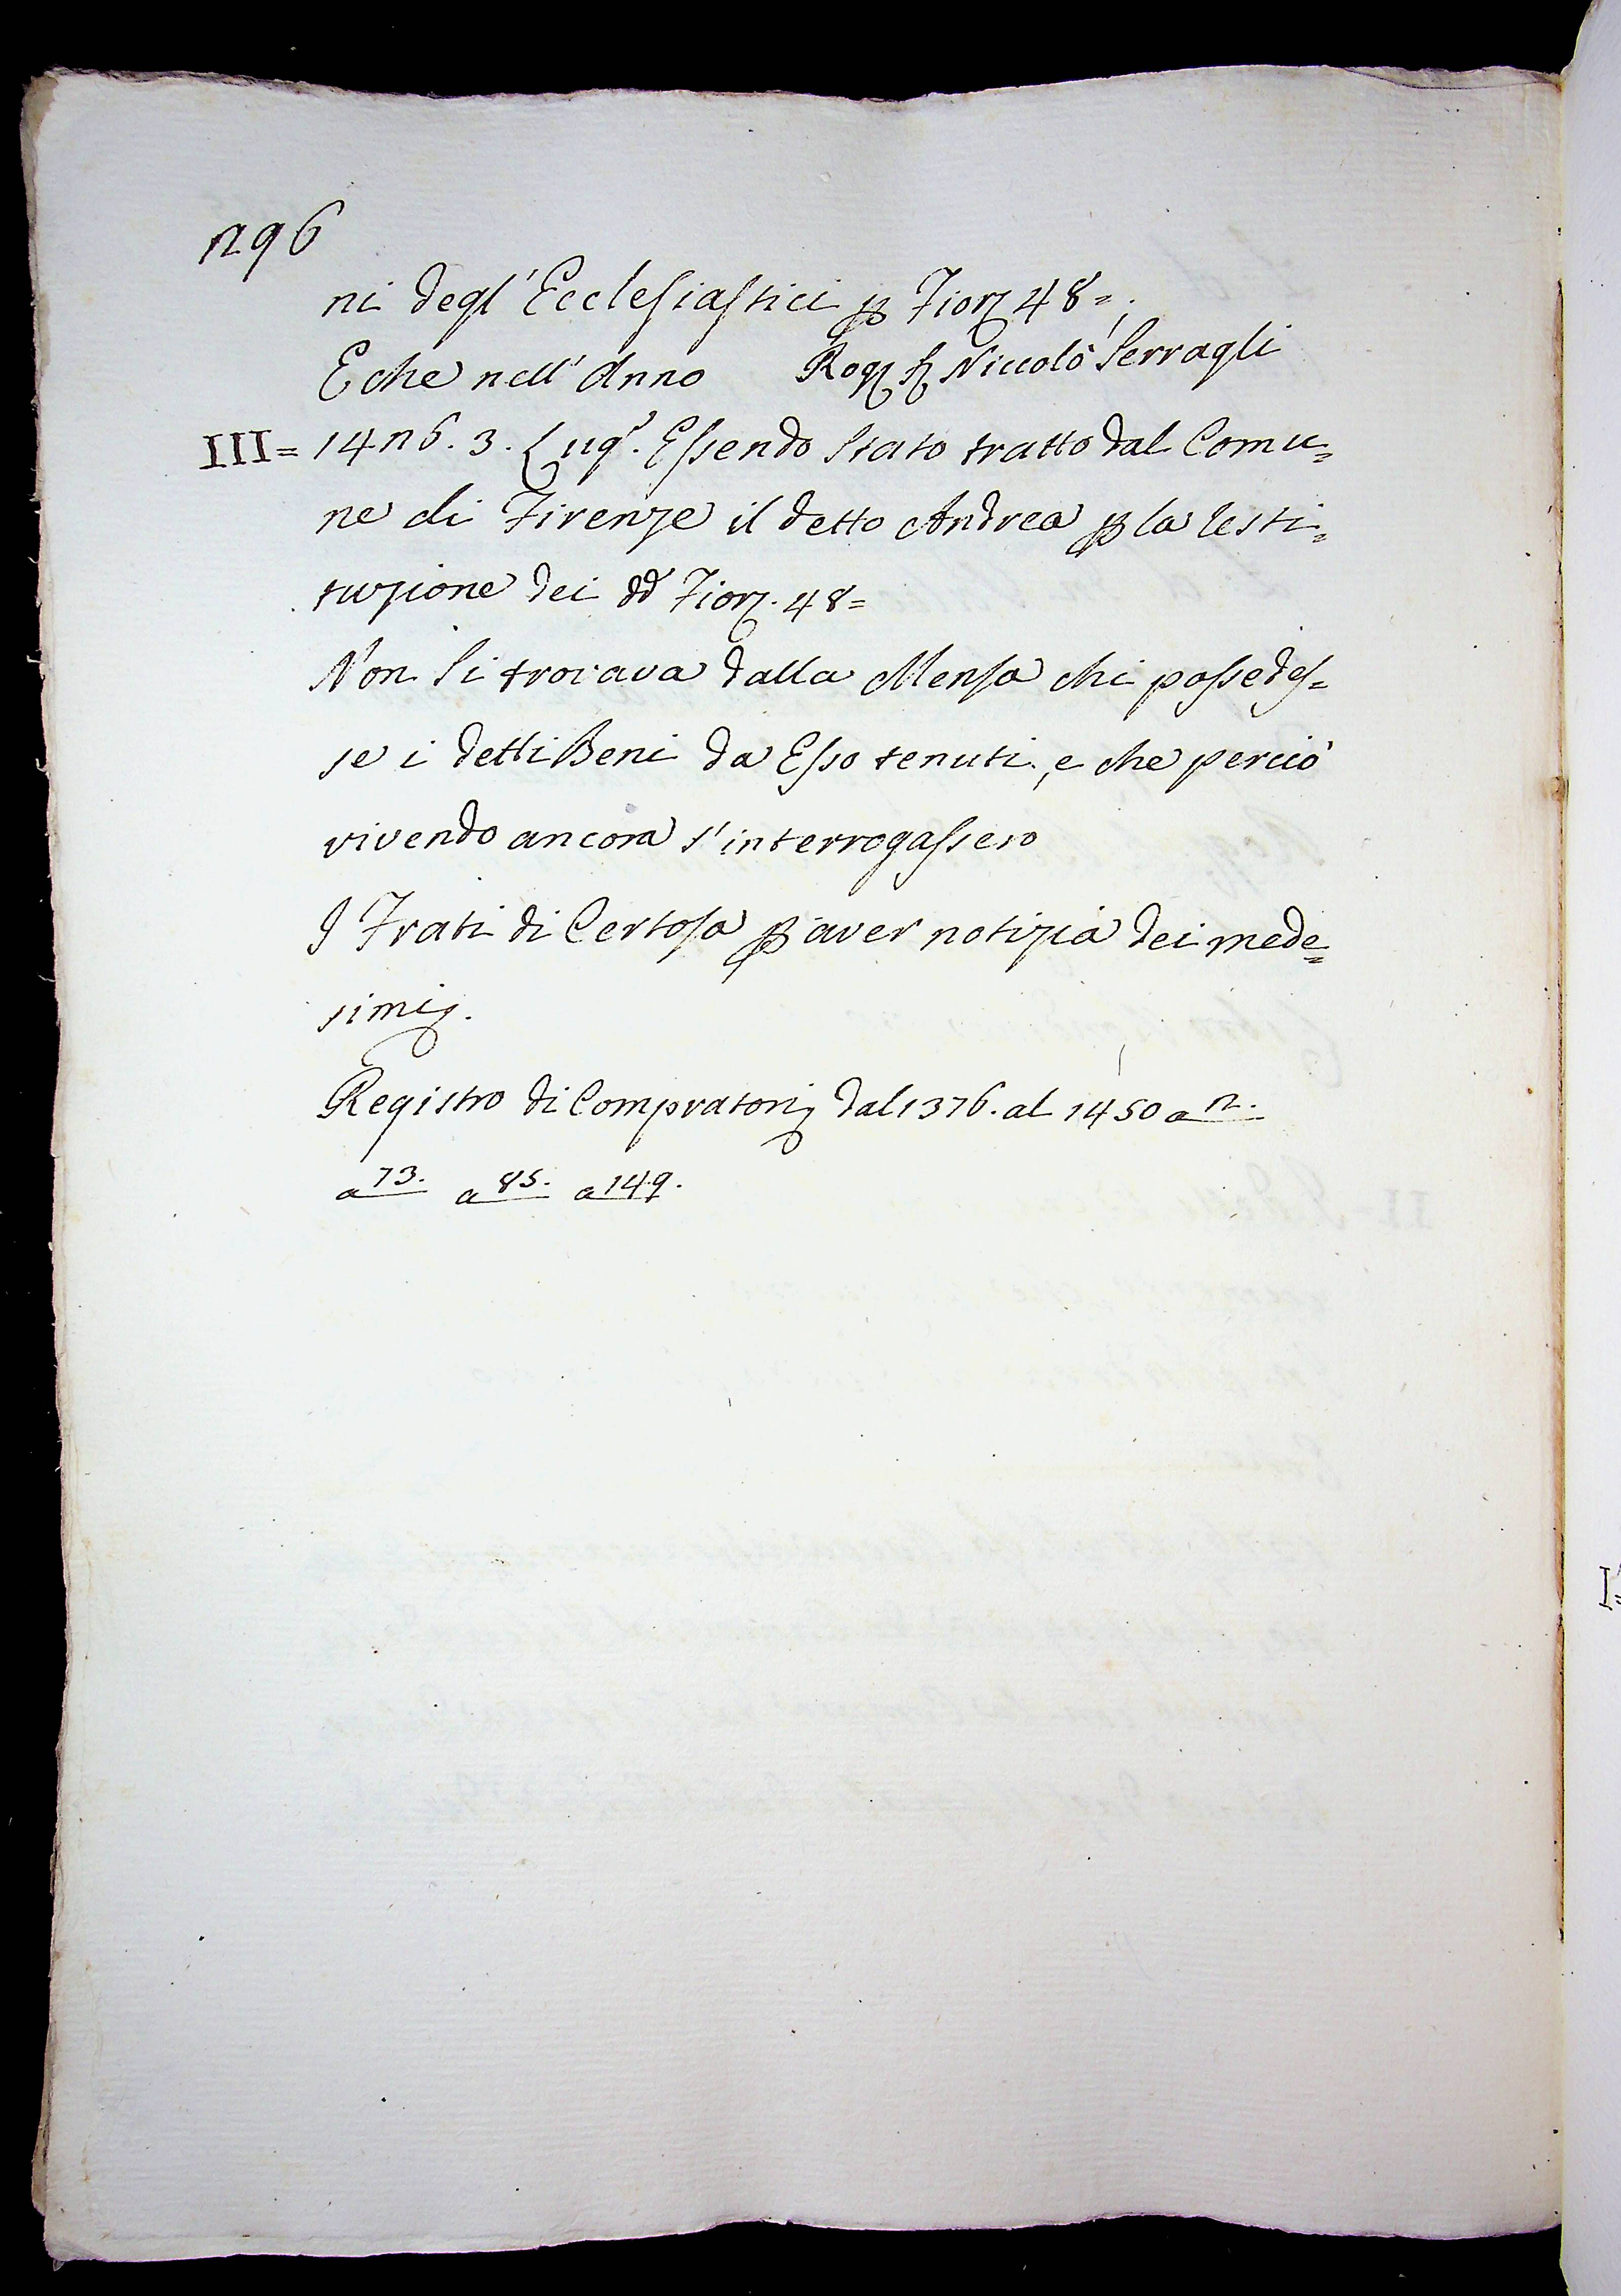 296
ni degl'Ecclesiastici p Fior 48=.
E che nell'Anno Rog S Niccolò Serragli
III= 1426. 3. Lug. Essendo Stato tratto dal Comu=
ne di Firenze il detto Andrea p la resti=
tuzione dei dd Fior. 48=
Non Si trovava dalla Mensa chi possedes=
se i detti Beni da Esso tenuti, e che perciò
vivendo ancora s'interrogassero
I Frati di Certosa p aver notizia dei mede=
simi.
Registro di Compratori dal 1376. al 1450 a 2.
a 73. a 85. a 149.
I=